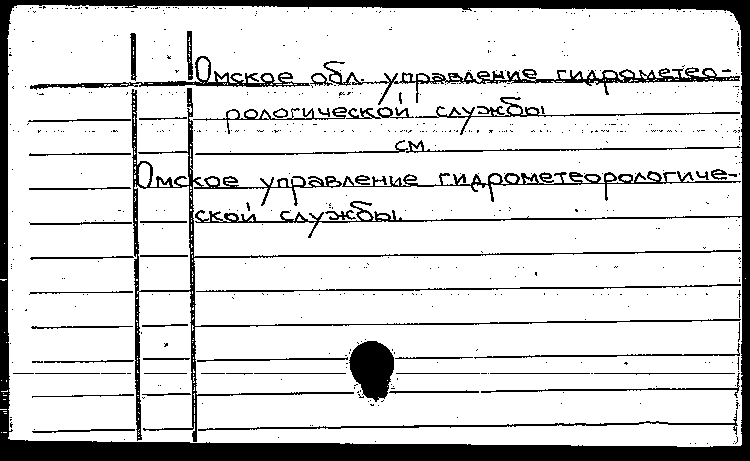 Омское обл. управление гидрометео-
рологической службы
см.
Омское управление гидрометеорологиче-
ской службы.